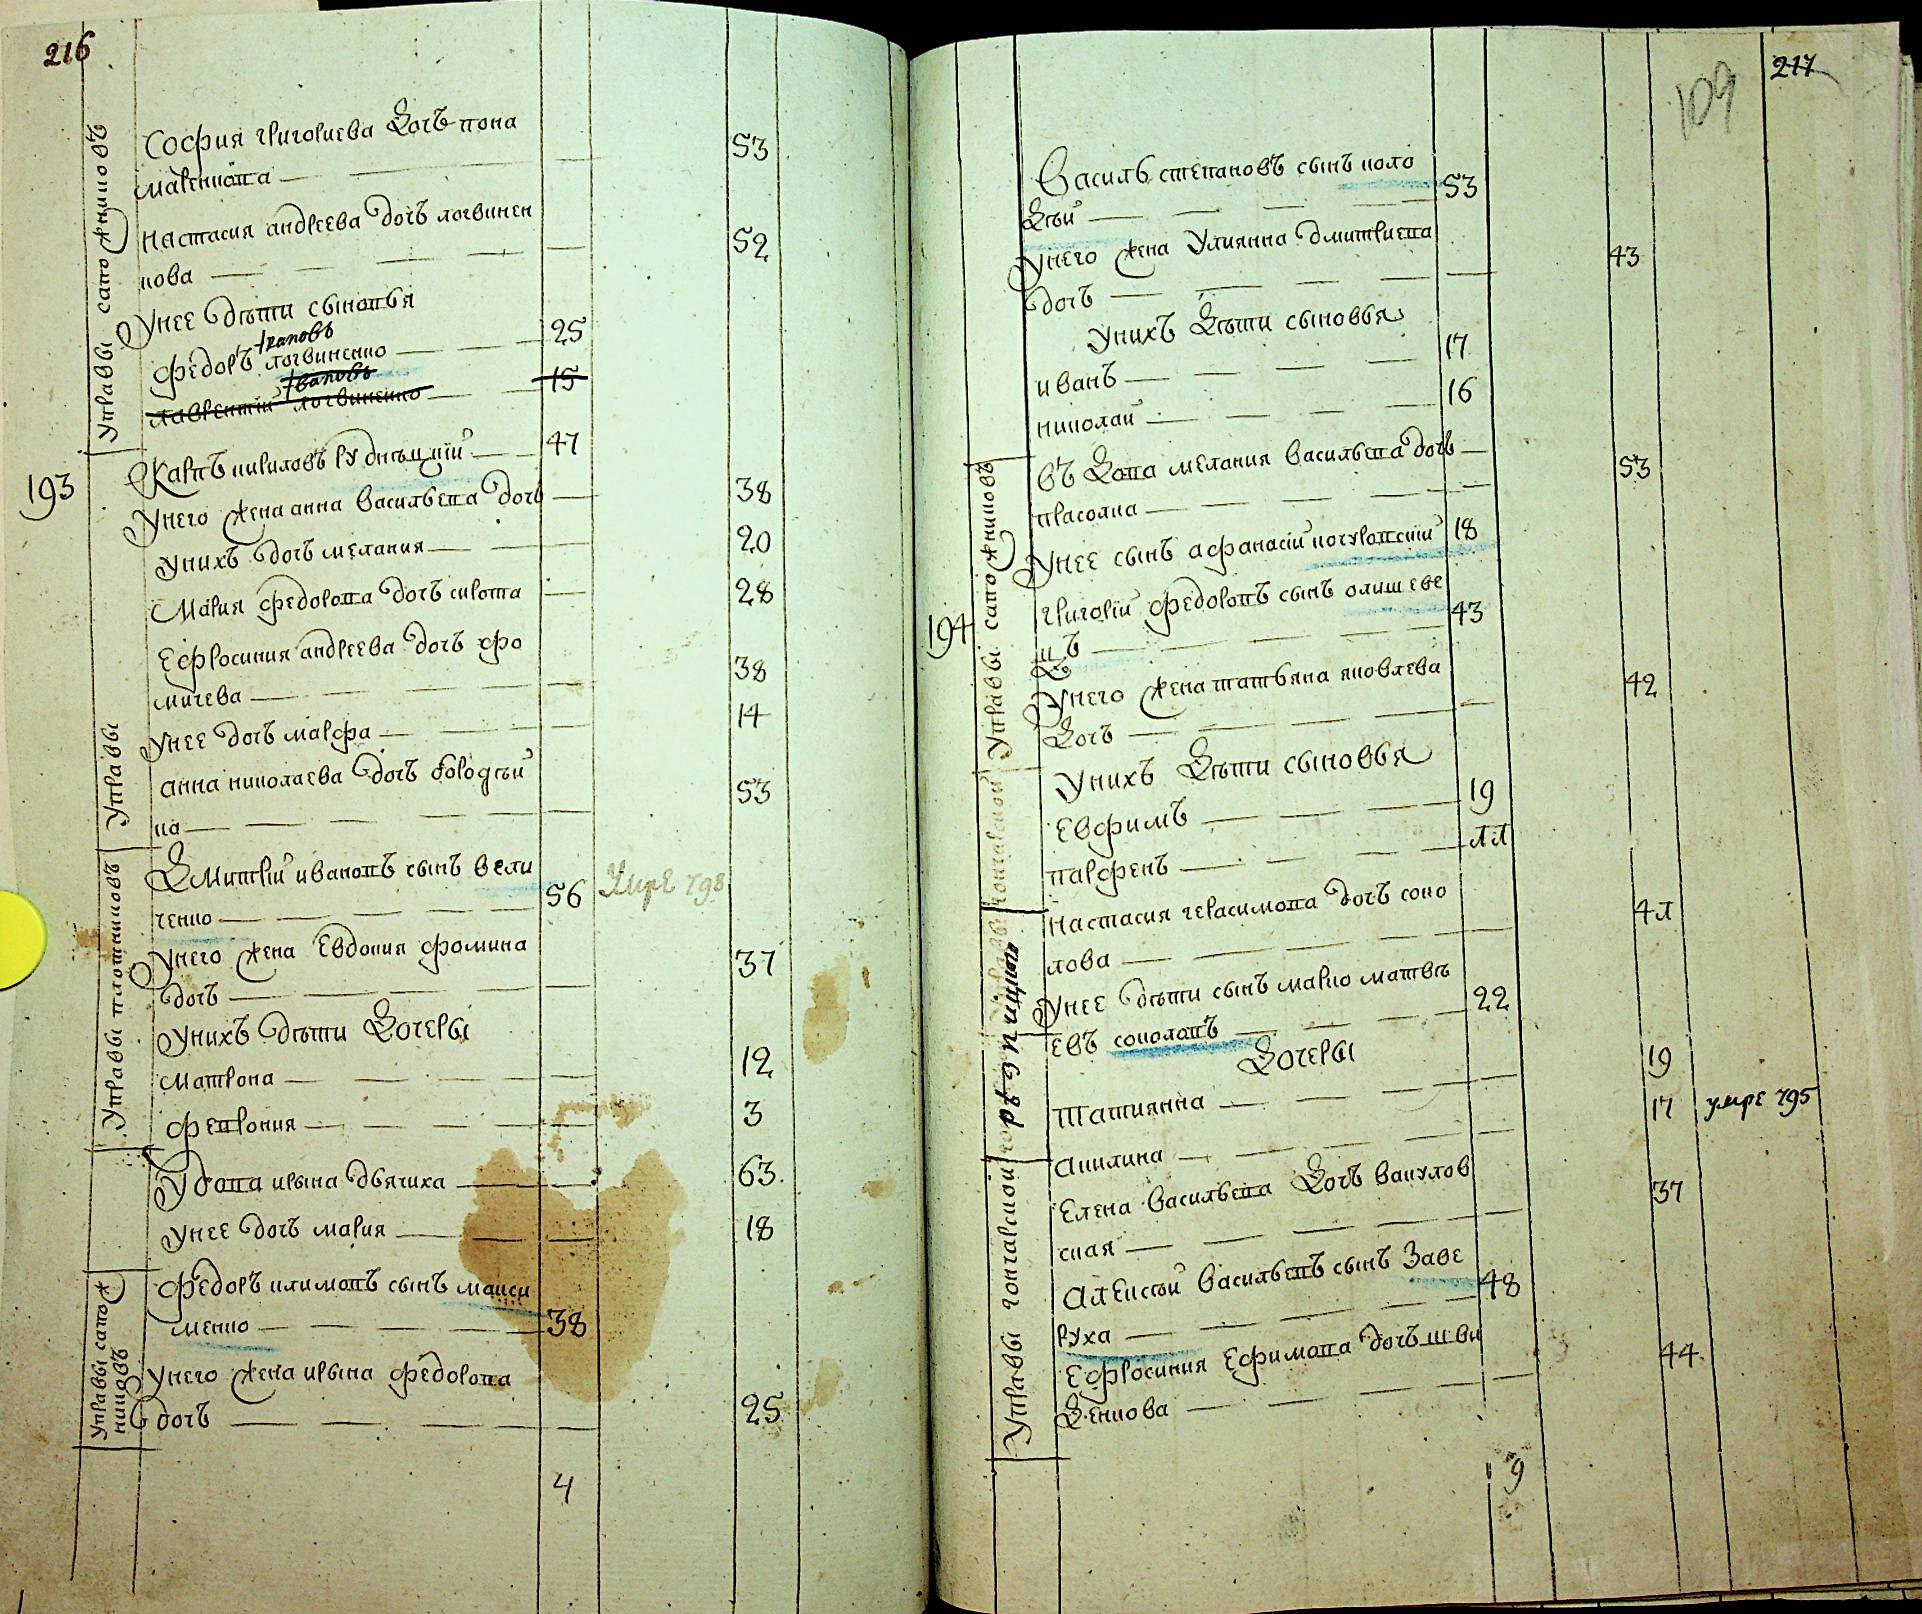 216
Управы сапожниковъ
София григориева дочь пона
маренкова
53
Настасия андреева дочь логвинен
кова
52
Унее дѣти сыновья
Федоръ логвиненко
25
лаврентий логвиненко
15
193
Карпъ кириловъ рудницкий
47
Унего жена анна васильева дочь
38
Унихъ дочь мелания
20
Мария федорова дочь сирота
28
Управы
Ефросиния андреева дочь фо
мичева
38
Унее дочь марфа
14
анна николаева дочь бородѣй
ка
53
Управы плотниковъ
Дмитрий ивановъ сынъ вели
ченко
56
Умре 798
Унего жена Евдокия фомина
дочь
37
Унихъ дѣти дочеры
матрона
12
феврония
3
Удова ирына дьячиха
63
Унее дочь мария
18
Управы сапож
никовъ
Федоръ климовъ сынъ макси
менко
38
Унего жена ирына федорова
дочь
25
4
217
109
Василь степановъ сынъ коло
дѣй
53
Унего жена Улиянна дмитриева
дочь
43
Унихъ дѣти сыновья
иванъ
17
николай
16
Управы сапожниковъ
въдова мелания васильева дочь
прасолка
53
Унее сынъ афанасий кочуровский
18
194
григорий федоровъ сынъ олишеве
цъ
43
Унего жена татьяна яковлева
дочь
42
Унихъ дѣти сыновья
Евфимъ
19
парфенъ
11
Настасия герасимова дочь соко
лова
41
Унее дѣти сынъ марко матвѣ
евъ соколовъ
22
дочеры
Татиянна
19
акилина
17
умре 795
Управы гончарской
Елена васильева дочь вакулов
ская
37
Алексѣй васильевъ сынъ Заве
руха
48
Ефросиния Ефимова дочь шви
денкова
44
9